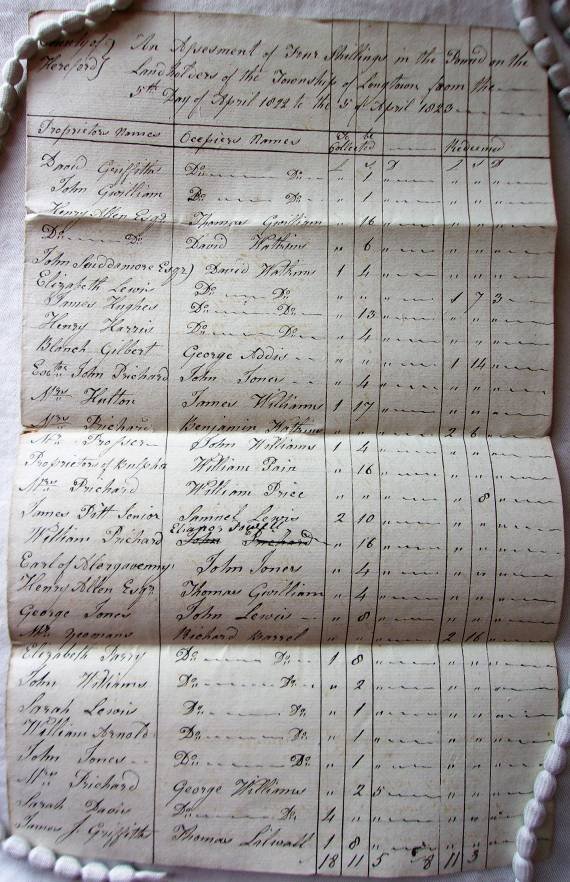 County of } An Assesment of Four Shillings in the Pound on the
Hereford } Landholders of the Township of Longtown from the
5th Day of April 1822 to the 5 of April 1823
Proprietors Names Occpiers Names To be Collected Redeemed
£ s D £ s D
David Griffiths Do Do " 1 " " " "
John Gwilliam Do Do " 1 " " " "
Henry Allen Esqr Thomas Gwilliam " 16 " " " "
Do Do David Watkins " 6 " " " "
John Scuddamore Esqr) David Watkins 1 4 " " " "
Elizabeth Lewis Do Do " " " 1 7 3
James Hughes Do Do " 13 " " " "
Henry Harris Do Do " 4 " " " "
Blanch Gilbert George Addis " " " 1 14 "
Exctor John Prichard John Jones " 4 " " " "
Mrs Hutton James Williams 1 17 " " " "
Mrs Prichard Benjamin Watkins " " " 2 6 "
Mr Prosser John Williams 1 4 " " " "
Proprietors of William Pain " 16 " " " "
Mrs Prichard William Price " " " " 8 "
James Pitt Senior Samuel Lewis 2 10 " " " "
Eleanor Powell
William Prichard John Prichard " 16 " " " "
Earl of Abergavenny John Jones " 4 " " " "
Henry Allen Esqr Thomas Gwilliam " 4 " " " "
George Jones John Lewis " 8 " " " "
Mr Yeomans Richard Barrel " " " 2 16 "
Elizabeth Parry Do Do 1 8 " " " "
John Williams Do Do " 2 " " " "
Sarah Lewis Do Do " 1 " " " "
William Arnold Do Do " 1 " " " "
John Jones Do Do " 1 " " " "
Mrs Prichard George Williams " 2 5 " " "
Sarah Davis Do Do 4 " " " " "
James J. Griffiths Thomas Lilwall 1 8 " " " "
18 11 5 8 11 3